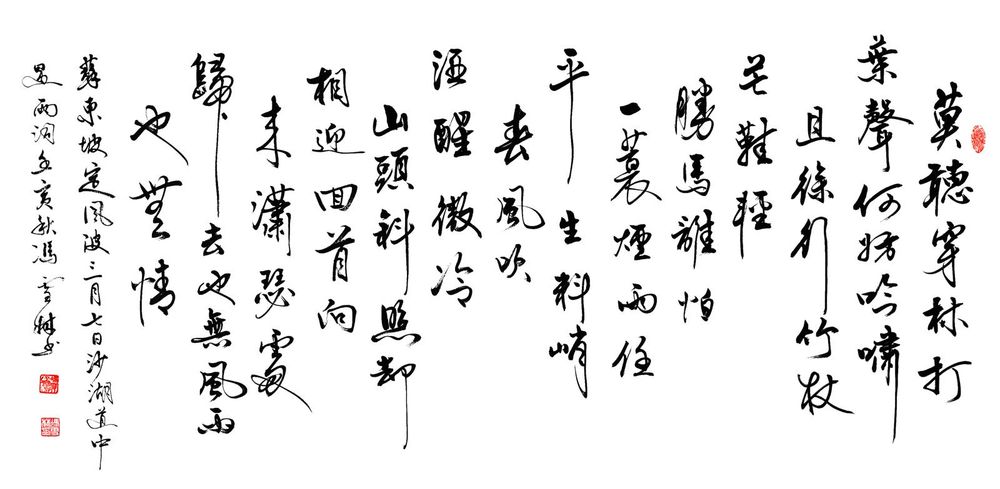 莫聽穿林打
葉聲何妨吟嘯
且徐行竹杖
芒鞋輕
勝馬誰怕
一蓑煙雨任
平生料峭
春風吹
酒醒微冷
山頭斜照却
相迎回首向
来瀟瑟處
歸去也無風雨
也無情
蘇東坡定風波三月七日沙湖道中
遇雨詞亥秋馮雪林書